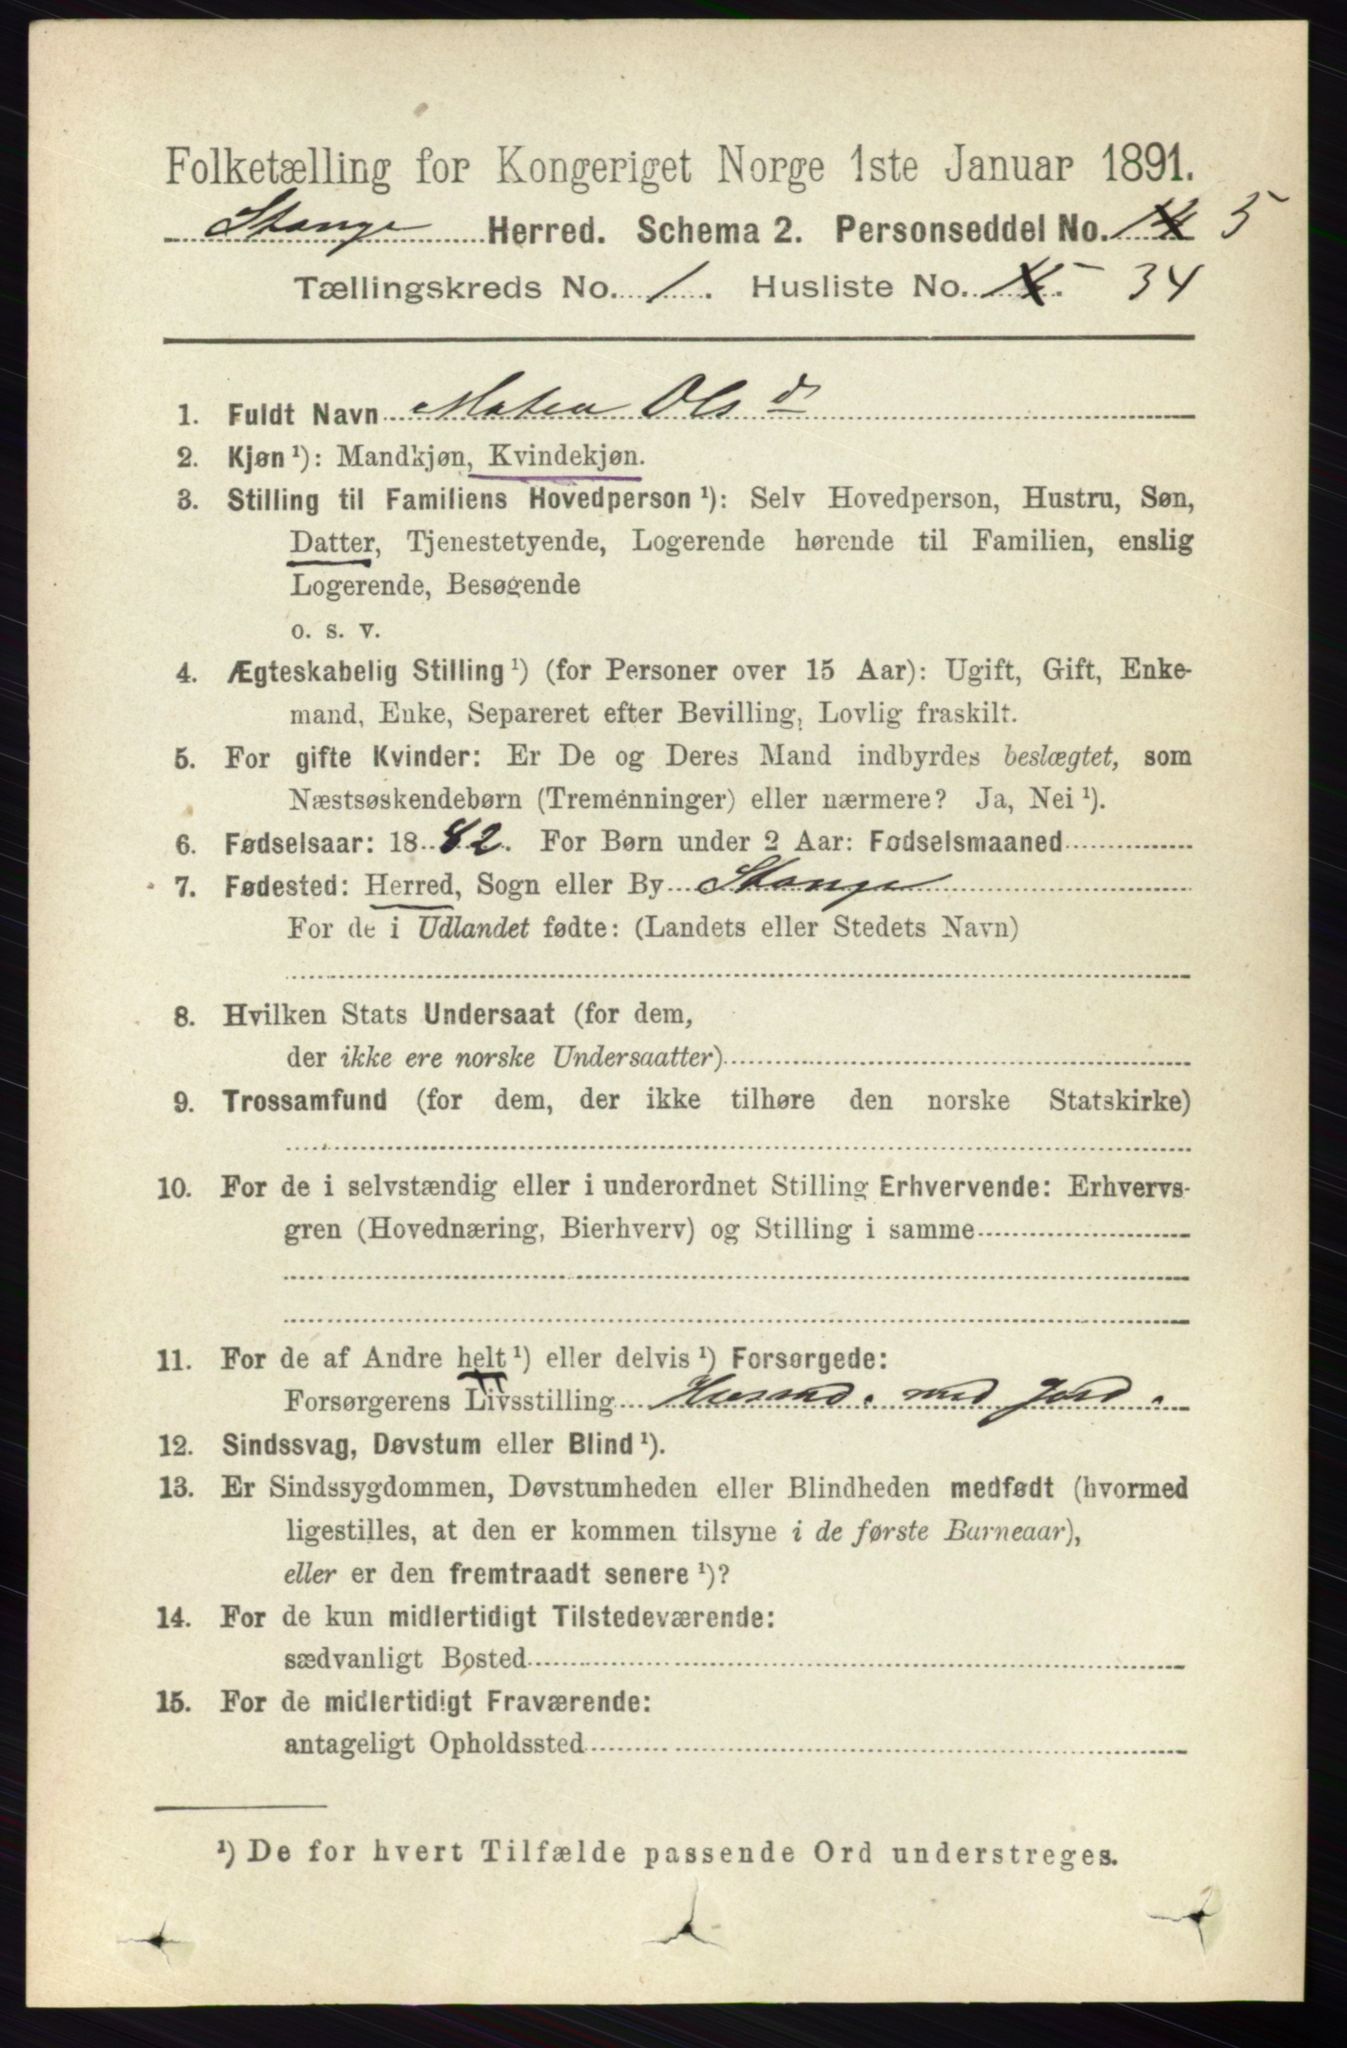 Folketælling for Kongeriget Norge 1ste Januar 1891.
Stange Herred. Schema 2. Personseddel No. 5
Tællingskreds No. 1. Husliste No. 34
1. Fuldt Navn Matea Ols d
2. Kjøn ¹): Mandkjøn, Kvindekjøn.
3. Stilling til Familiens Hovedperson ¹): Selv Hovedperson, Hustru, Søn,
Datter, Tjenestetyende, Logerende hørende til Familien, enslig
Logerende, Besøgende
o. s. v.
4. Ægteskabelig Stilling ¹) (for Personer over 15 Aar): Ugift, Gift, Enke-
mand, Enke, Separeret efter Bevilling, Lovlig fraskilt.
5. For gifte Kvinder: Er De og Deres Mand indbyrdes beslægtet, som
Næstsøskendebørn (Tremenninger) eller nærmere? Ja, Nei ¹).
6. Fødselsaar: 1882. For Børn under 2 Aar: Fodselsmaaned
7. Fødested: Herred, Sogn eller By Stange
For de i Udlandet fødte: (Landets eller Stedets Navn)
8. Hvilken Stats Undersaat (for dem,
der ikke ere norske Undersaatter)
9. Trossamfund (for dem, der ikke tilhøre den norske Statskirke)
10. For de i selvstændig eller i underordnet Stilling Erhvervende: Erhvervs-
gren (Hovednæring, Bierhverv) og Stilling i samme
11. For de af Andre helt ¹) eller delvis ¹) Forsørgede:
Forsørgerens Livsstilling Husmd. med Jord.
12. Sindssvag, Døvstum eller Blind ¹).
13. Er Sindssygdommen, Døvstumheden eller Blindheden medfødt (hvormed
ligestilles, at den er kommen tilsyne i de første Barneaar),
eller er den fremtraadt senere ¹)?
14. For de kun midlertidigt Tilstedeværende:
sædvanligt Bosted
15. For de midlertidigt Fraværende:
antageligt Opholdssted
¹) De for hvert Tilfælde passende Ord understreges.